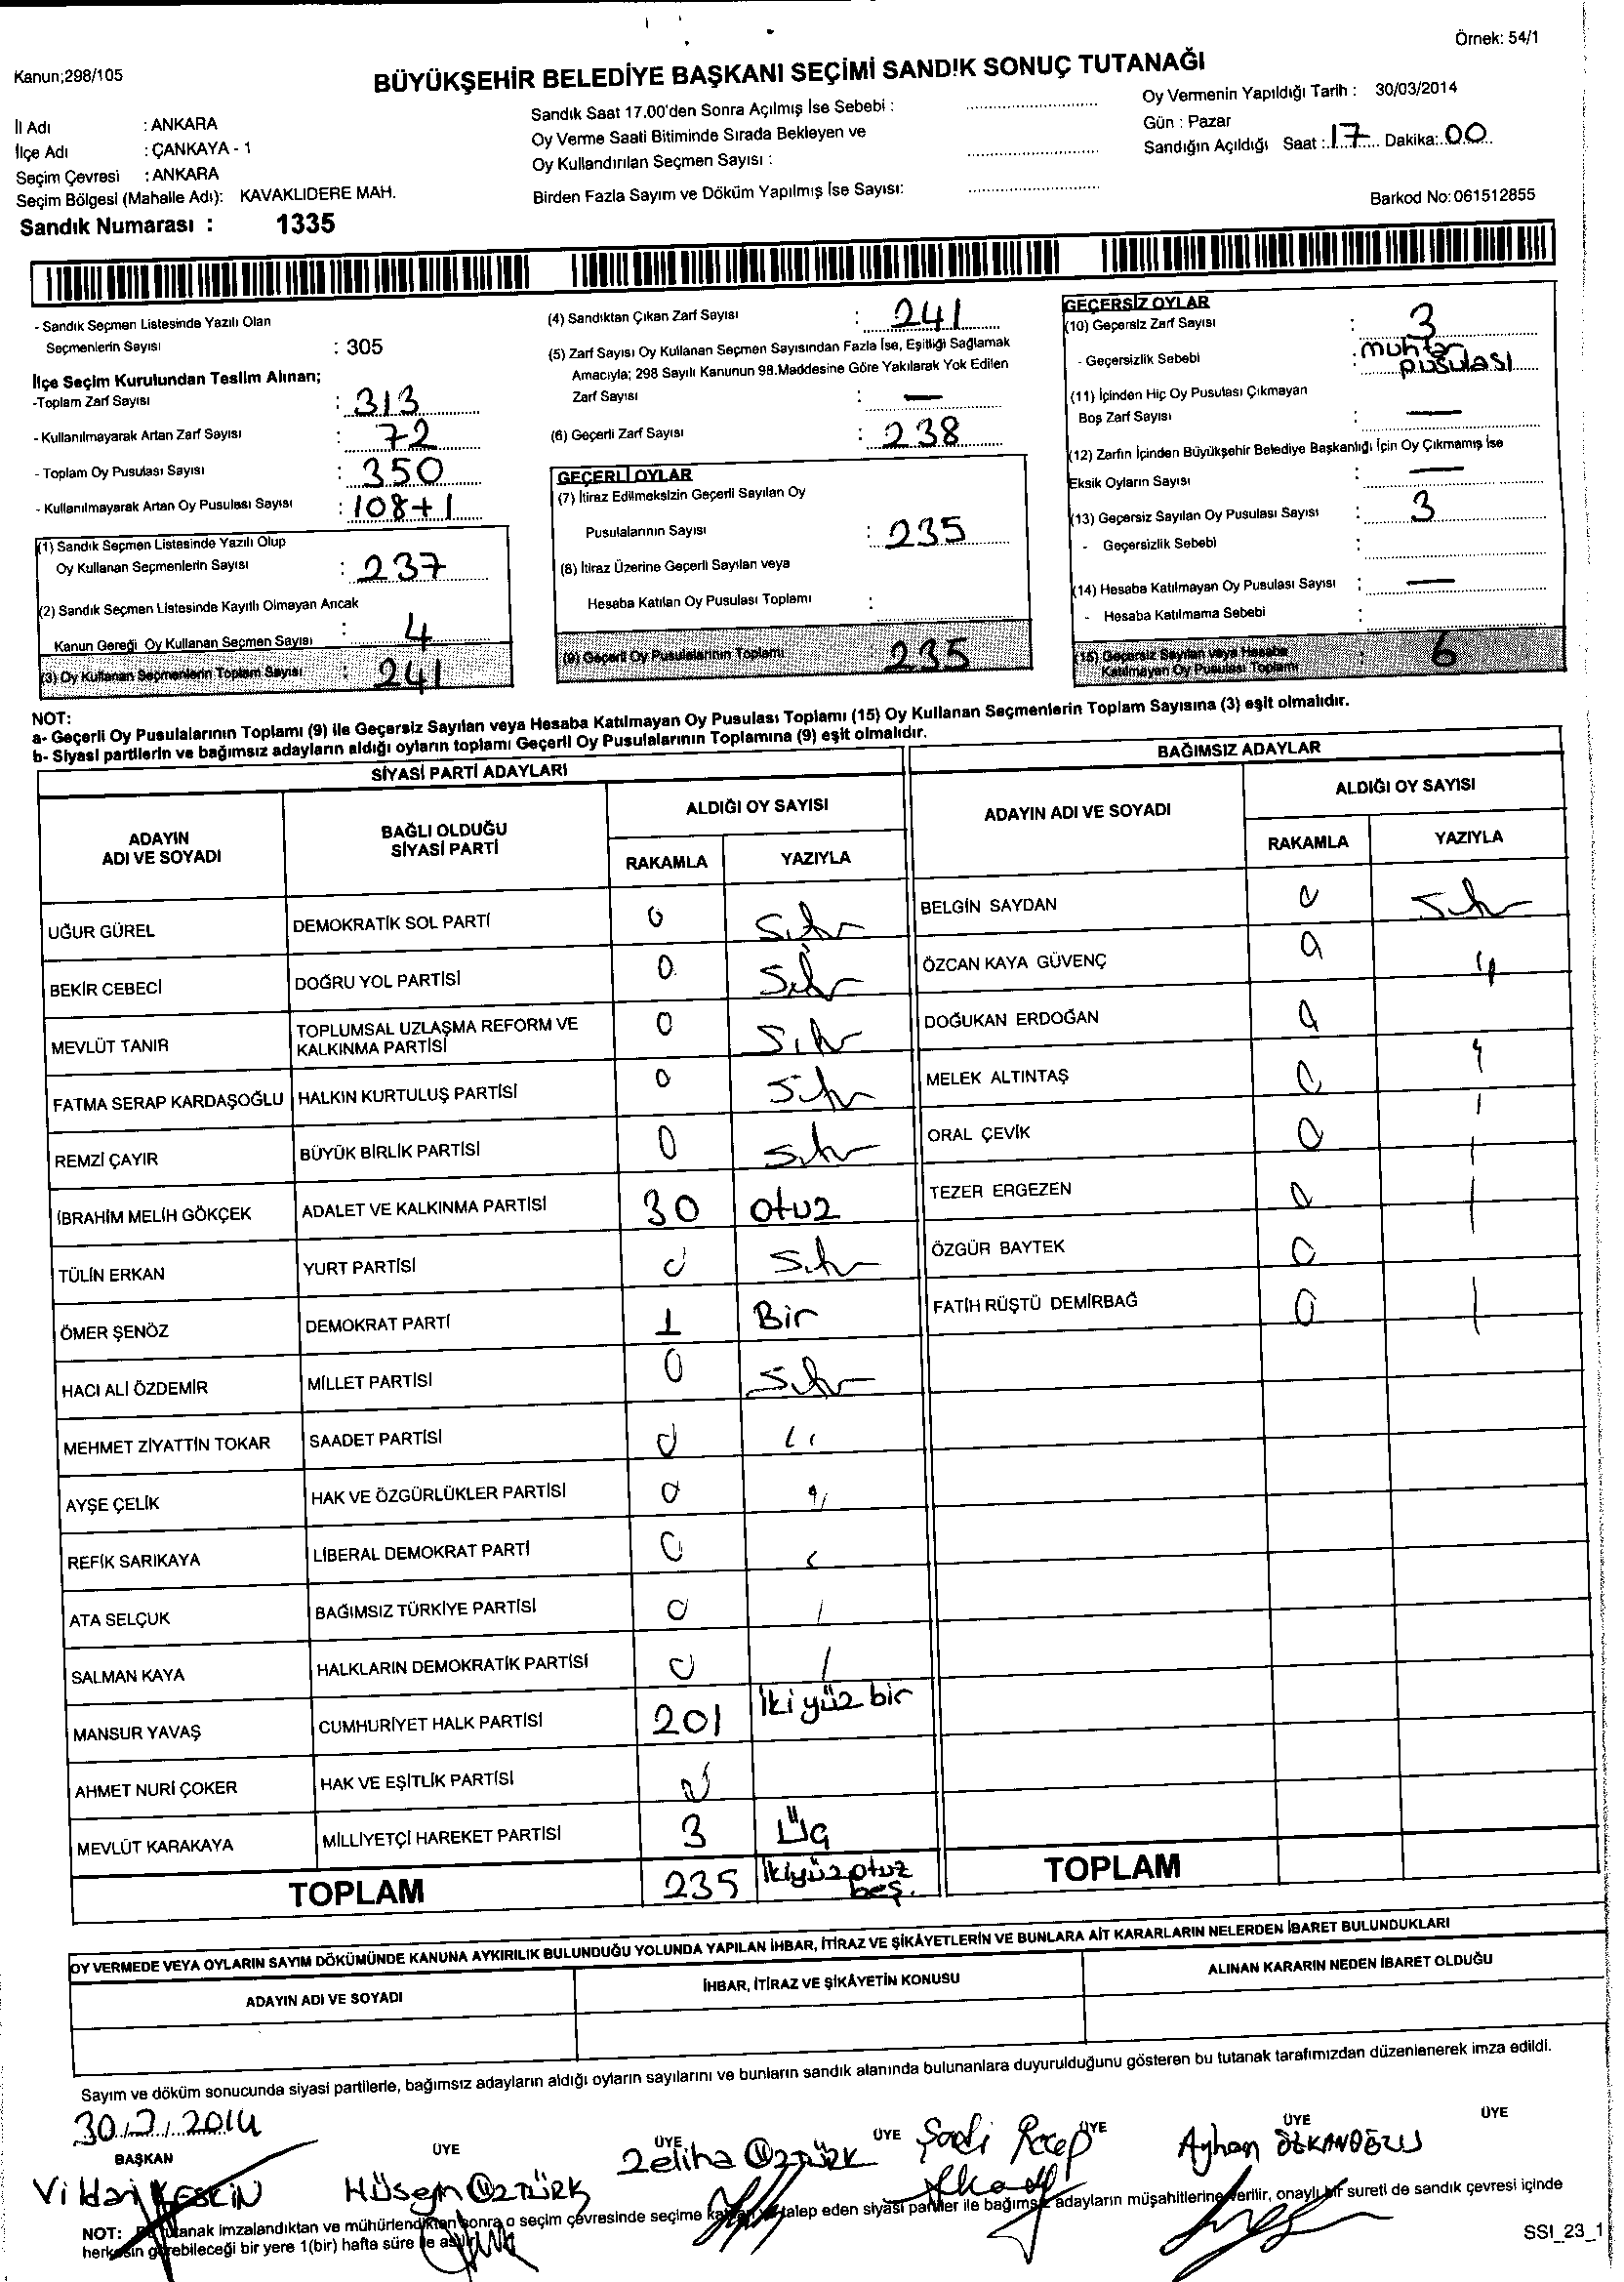 Örnek: 54/1
Kanun;298/105
BÜYÜKŞEHİR BELEDİYE BAŞKANI SEÇİMİ SANDIK SONUÇ TUTANAĞI
İl Adı : ANKARA
İlçe Adı : ÇANKAYA - 1
Seçim Çevresi : ANKARA
Seçim Bölgesi (Mahalle Adı): KAVAKLIDERE MAH.
Sandık Numarası : 1335
Sandık Saat 17.00'den Sonra Açılmış İse Sebebi :
Oy Verme Saati Bitiminde Sırada Bekleyen ve
Oy Kullandırılan Seçmen Sayısı :
Birden Fazla Sayım ve Döküm Yapılmış İse Sayısı:
Oy Vermenin Yapıldığı Tarih : 30/03/2014
Gün : Pazar
Sandığın Açıldığı Saat : 17 Dakika: 00
Barkod No: 061512855
- Sandık Seçmen Listesinde Yazılı Olan
Seçmenlerin Sayısı : 305
İlçe Seçim Kurulundan Teslim Alınan;
-Toplam Zarf Sayısı : 313
- Kullanılmayarak Artan Zarf Sayısı : 72
- Toplam Oy Pusulası Sayısı : 350
- Kullanılmayarak Artan Oy Pusulası Sayısı : 108+1
(1) Sandık Seçmen Listesinde Yazılı Olup
Oy Kullanan Seçmenlerin Sayısı : 237
(2) Sandık Seçmen Listesinde Kayıtlı Olmayan Ancak
Kanun Gereği Oy Kullanan Seçmen Sayısı : 4
(3) Oy Kullanan Seçmenlerin Toplam Sayısı : 241
(4) Sandıktan Çıkan Zarf Sayısı : 241
(5) Zarf Sayısı Oy Kullanan Seçmen Sayısından Fazla İse, Eşitliği Sağlamak
Amacıyla; 298 Sayılı Kanunun 98.Maddesine Göre Yakılarak Yok Edilen
Zarf Sayısı : —
(6) Geçerli Zarf Sayısı : 238
GEÇERLİ OYLAR
(7) İtiraz Edilmeksizin Geçerli Sayılan Oy
Pusulalarının Sayısı : 235
(8) İtiraz Üzerine Geçerli Sayılan veya
Hesaba Katılan Oy Pusulası Toplamı :
(9) Geçerli Oy Pusulalarının Toplamı : 235
GEÇERSİZ OYLAR
(10) Geçersiz Zarf Sayısı : 3
- Geçersizlik Sebebi : muhtar
pusulası
(11) İçinden Hiç Oy Pusulası Çıkmayan
Boş Zarf Sayısı : —
(12) Zarfın İçinden Büyükşehir Belediye Başkanlığı İçin Oy Çıkmamış İse
Eksik Oyların Sayısı : —
(13) Geçersiz Sayılan Oy Pusulası Sayısı : 3
- Geçersizlik Sebebi :
(14) Hesaba Katılmayan Oy Pusulası Sayısı : —
- Hesaba Katılmama Sebebi :
(15) Geçersiz Sayılan veya Hesaba
Katılmayan Oy Pusulası Toplamı : 6
NOT:
a- Geçerli Oy Pusulalarının Toplamı (9) ile Geçersiz Sayılan veya Hesaba Katılmayan Oy Pusulası Toplamı (15) Oy Kullanan Seçmenlerin Toplam Sayısına (3) eşit olmalıdır.
b- Siyasi partilerin ve bağımsız adayların aldığı oyların toplamı Geçerli Oy Pusulalarının Toplamına (9) eşit olmalıdır.
SİYASİ PARTİ ADAYLARI
ADAYIN
ADI VE SOYADI
BAĞLI OLDUĞU
SİYASİ PARTİ
ALDIĞI OY SAYISI
RAKAMLA YAZIYLA
UĞUR GÜREL DEMOKRATİK SOL PARTİ 0 Sıfır
BEKİR CEBECİ DOĞRU YOL PARTİSİ 0 Sıfır
MEVLÜT TANIR TOPLUMSAL UZLAŞMA REFORM VE
KALKINMA PARTİSİ 0 Sıfır
FATMA SERAP KARDAŞOĞLU HALKIN KURTULUŞ PARTİSİ 0 Sıfır
REMZİ ÇAYIR BÜYÜK BİRLİK PARTİSİ 0 Sıfır
İBRAHİM MELİH GÖKÇEK ADALET VE KALKINMA PARTİSİ 30 otuz
TÜLİN ERKAN YURT PARTİSİ 0 Sıfır
ÖMER ŞENÖZ DEMOKRAT PARTİ 1 Bir
HACI ALİ ÖZDEMİR MİLLET PARTİSİ 0 Sıfır
MEHMET ZİYATTİN TOKAR SAADET PARTİSİ 0
AYŞE ÇELİK HAK VE ÖZGÜRLÜKLER PARTİSİ 0
REFİK SARIKAYA LİBERAL DEMOKRAT PARTİ 0
ATA SELÇUK BAĞIMSIZ TÜRKİYE PARTİSİ 0
SALMAN KAYA HALKLARIN DEMOKRATİK PARTİSİ 0
MANSUR YAVAŞ CUMHURİYET HALK PARTİSİ 201 İki yüz bir
AHMET NURİ ÇOKER HAK VE EŞİTLİK PARTİSİ 0
MEVLÜT KARAKAYA MİLLİYETÇİ HAREKET PARTİSİ 3 Üç
TOPLAM 235 İkiyüz otuz
beş.
BAĞIMSIZ ADAYLAR
ADAYIN ADI VE SOYADI
ALDIĞI OY SAYISI
RAKAMLA YAZIYLA
BELGİN SAYDAN 0 Sıfır
ÖZCAN KAYA GÜVENÇ 0
DOĞUKAN ERDOĞAN 0
MELEK ALTINTAŞ 0
ORAL ÇEVİK 0
TEZER ERGEZEN 0
ÖZGÜR BAYTEK 0
FATİH RÜŞTÜ DEMİRBAĞ 0
TOPLAM
OY VERMEDE VEYA OYLARIN SAYIM DÖKÜMÜNDE KANUNA AYKIRILIK BULUNDUĞU YOLUNDA YAPILAN İHBAR, İTİRAZ VE ŞİKÂYETLERİN VE BUNLARA AİT KARARLARIN NELERDEN İBARET BULUNDUKLARI
ADAYIN ADI VE SOYADI
İHBAR, İTİRAZ VE ŞİKÂYETİN KONUSU
ALINAN KARARIN NEDEN İBARET OLDUĞU
Sayım ve döküm sonucunda siyasi partilerle, bağımsız adayların aldığı oyların sayılarını ve bunların sandık alanında bulunanlara duyurulduğunu gösteren bu tutanak tarafımızdan düzenlenerek imza edildi.
30/3/2014
BAŞKAN ÜYE ÜYE ÜYE ÜYE ÜYE ÜYE
Vildan KESKİN
Hüseyin ÖZTÜRK
Zeliha ÖZTÜRK
Şadi Recep
Ayhan
NOT: tutanak imzalandıktan ve mühürlendikten sonra o seçim çevresinde seçime talep eden siyasi partiler ile bağımsız adayların müşahitlerine verilir, onaylı bir sureti de sandık çevresi içinde
herkesin görebileceği bir yere 1(bir) hafta süre ile
SSI_23_1